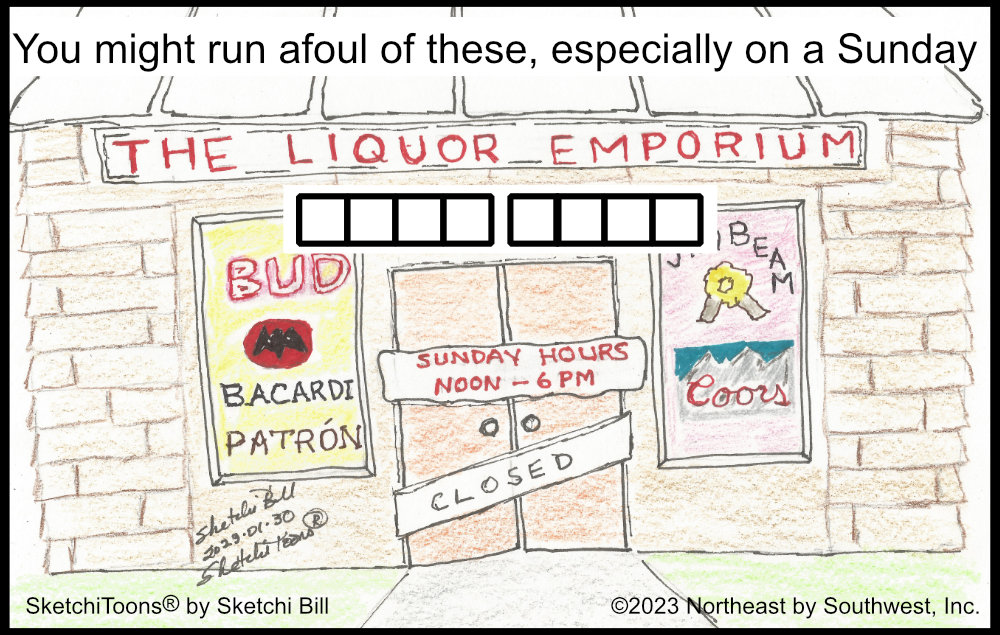 You might run afoul of these, especially on a Sunday
THE LIQUOR EMPORIUM
BUD
BACARDI
PATRÓN
BEAM
Coors
SUNDAY HOURS
NOON - 6 PM
CLOSED
Sketchi Bill
2023.01.30
SketchiToons®
SketchiToons® by Sketchi Bill
©2023 Northeast by Southwest, Inc.